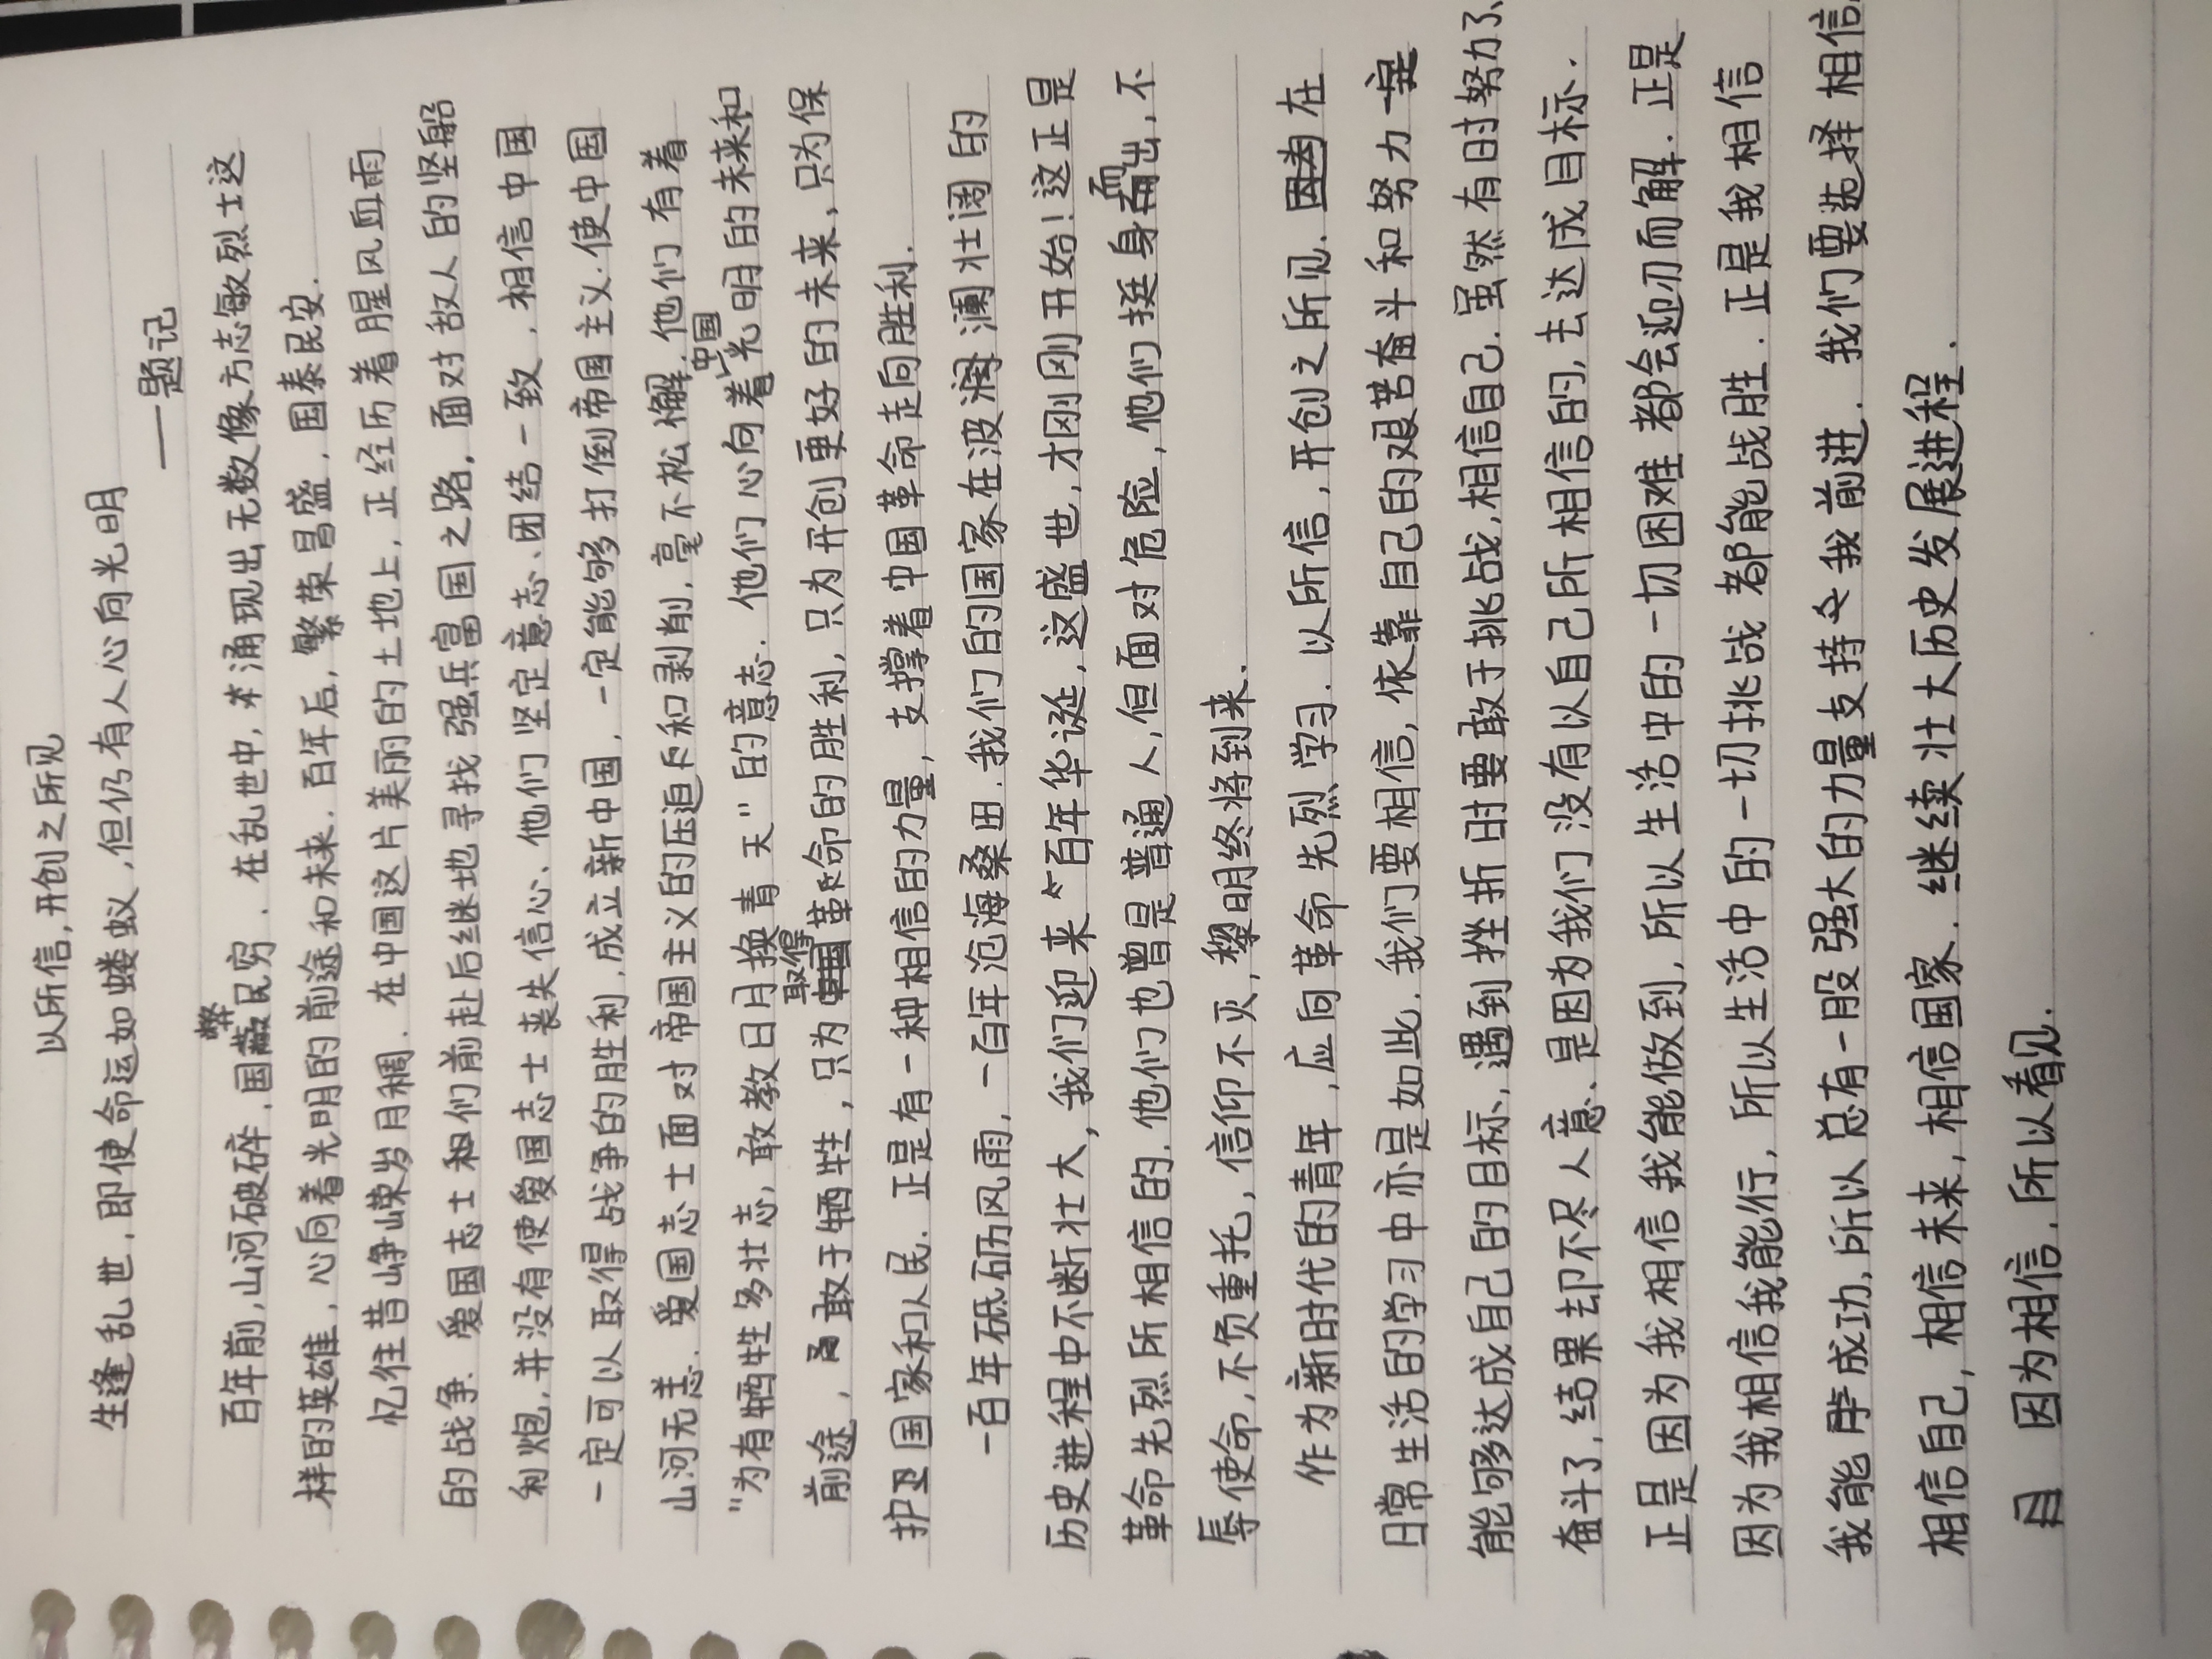 以所信,开创之所见
生逢乱世,即使命运如蝼蚁,但仍有人心向光明
——题记
百年前,山河破碎,国弊民穷.在乱世中,涌现出无数像方志敏烈士这
样的英雄,心向着光明的前途和未来.百年后,繁荣昌盛,国泰民安.
忆往昔峥嵘岁月稠.在中国这片美丽的土地上,正经历着腥风血雨
的战争.爱国志士们前赴后继地寻找强兵富国之路,面对敌人的坚船
利炮,并没有使爱国志士丧失信心、他们坚定意志、团结一致,相信中国
一定可以取得战争的胜利,成立新中国,一定能够打倒帝国主义.使中国
山河无恙.爱国志士面对帝国主义的压迫和剥削,毫不松懈.他们有着
“为有牺牲多壮志,敢教日月换青天”的意志.他们心向着中国光明的未来和
前途,敢于牺牲,只为取得革命的胜利,只为开创更好的未来,只为保
护卫国家和人民.正是有一种相信的力量,支撑着中国革命走向胜利.
一百年砥砺风雨,一百年沧海桑田.我们的国家在波澜壮阔的
历史进程中不断壮大,我们迎来“百年华诞,这盛世,才刚刚开始!这正是
革命先烈所相信的.他们也曾是普通人,但面对危险,他们挺身而出,不
辱使命,不负重托,信仰不灭,黎明终将到来.
作为新时代的青年,应向革命先烈学习.以所信,开创之所见.在
日常生活的学习中亦是如此.我们要相信,依靠自己的艰苦奋斗和努力
能够达成自己的目标,遇到挫折时要敢于挑战,相信自己.虽然有时努力了、
奋斗了,结果却不尽人意、是因为我们没有以自己所相信的,去达成目标.
正是因为我相信我能做到,所以生活中的一切困难都会迎刃而解.正是
因为我相信我能行,所以生活中的一切挑战都能战胜.正是我相信
我能成功,所以总有一股强大的力量支持我前进.我们要选择相信,
相信自己,相信未来,相信国家.继续壮大历史发展进程.
因为相信,所以看见.